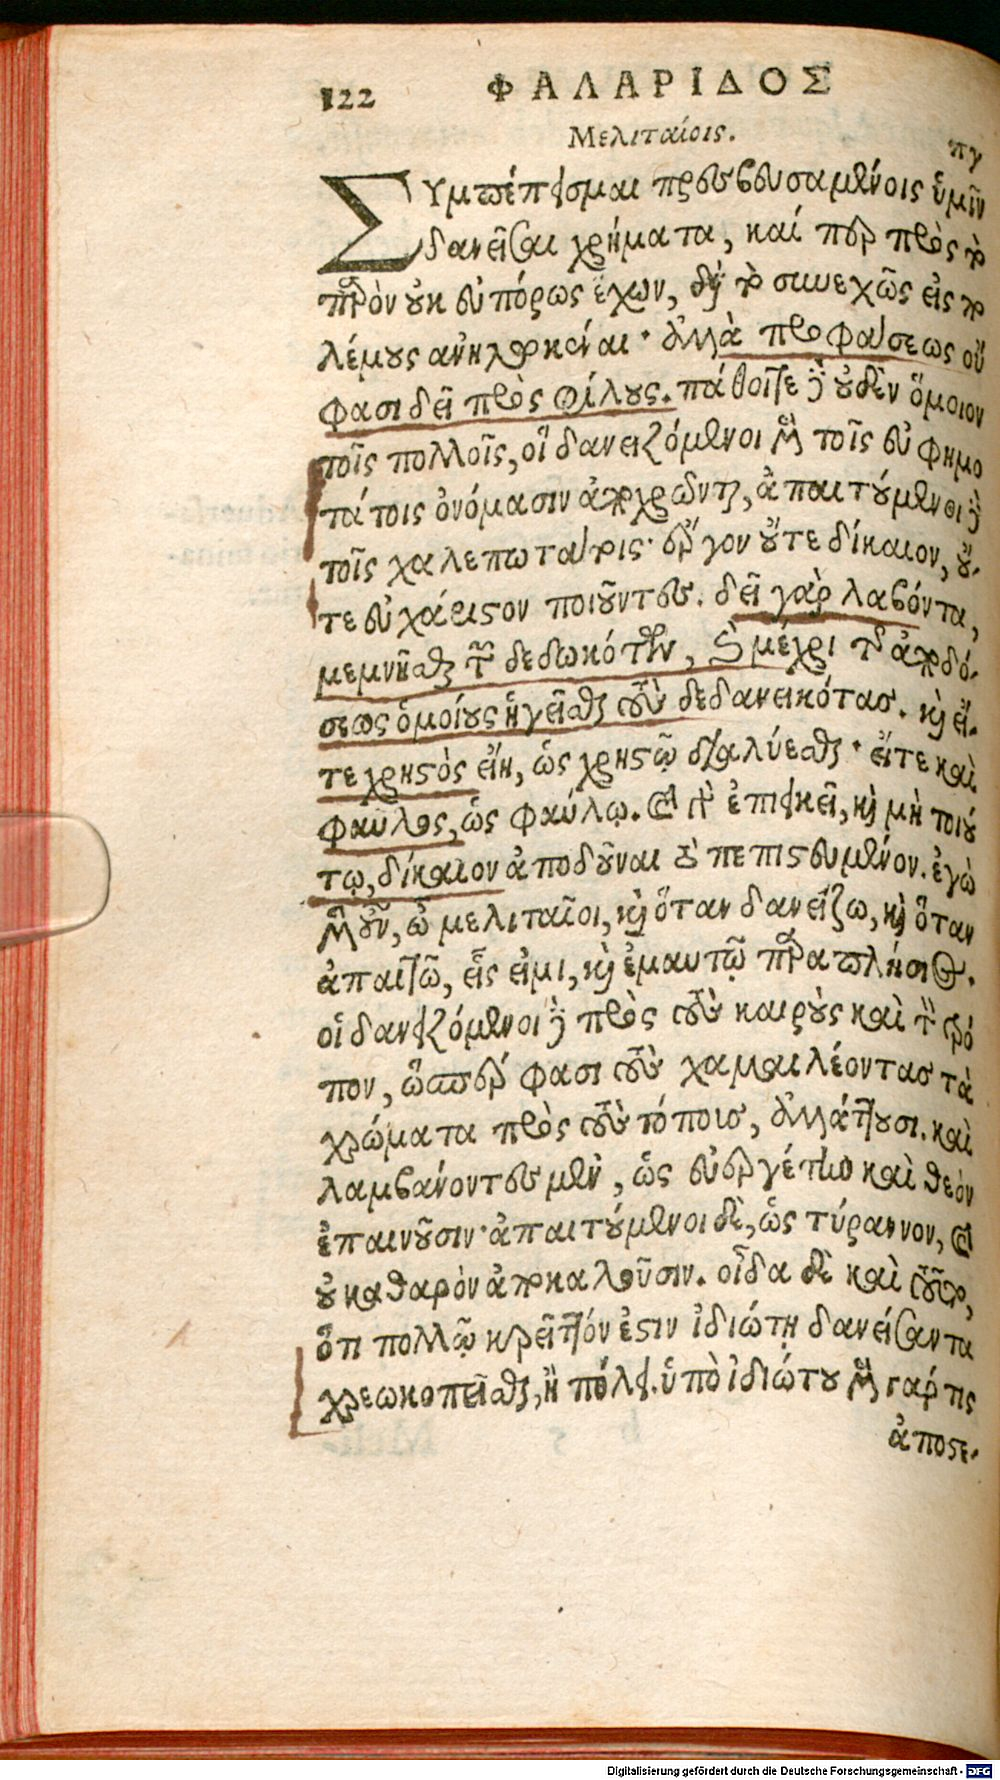 122 ΦΑΛΑΡΙΔΟΣ
Μελιταίοις. πγ
Συμπέπεισμαι πρεσβευσαμένοις ὑμῖν
δανεῖσαι χρήματα, καί περ πρὸς τὸ
παρὸν οὐκ εὐπόρως ἔχων, διὰ τὸ συνεχῶς εἰς πο
λέμους ἀνηλωκέναι· ἀλλὰ προφάσεως οὔ
φασι δεῖ πρὸς φίλους. πάθοιτε δὲ οὐδὲν ὅμοιον
τοῖς πολλοῖς, οἳ δανειζόμενοι μὲν τοῖς εὐφημο
τάτοις ὀνόμασιν ἀποχρῶνται, ἀπαιτούμενοι δὲ
τοῖς χαλεπωτάτοις· ἔργον οὔτε δίκαιον, οὔ-
τε εὐχάριστον ποιοῦντες. δεῖ γὰρ λαβόντα,
μεμνῆσθαι τῶν δεδωκότων, καὶ μέχρι τῆς ἀποδό-
σεως ὁμοίους ἡγεῖσθαι τοὺς δεδανεικότας. καὶ εἴ-
τε χρηστὸς εἴη, ὡς χρηστῷ διαλύεσθαι· εἴτε καὶ
φαῦλος, ὡς φαύλῳ. καὶ γὰρ ἐπιεικεῖ, καὶ μὴ τοιού
τῳ, δίκαιον ἀποδοῦναι τὸ πεπιστευμένον. ἐγὼ
μὲν οὖν, ὦ μελιταῖοι, καὶ ὅταν δανείζω, καὶ ὅταν
ἀπαιτῶ, εἷς εἰμι, καὶ ἐμαυτῷ παραπλήσιος.
οἱ δανειζόμενοι δὲ πρὸς τοὺς καιροὺς καὶ τὸν τρό
πον, ὥσπερ φασὶ τοὺς χαμαιλέοντας τὰ
χρώματα πρὸς τοὺς τόπους, ἀλλάττουσι. καὶ
λαμβάνοντες μὲν, ὡς εὐεργέτην καὶ θεὸν
ἐπαινοῦσιν· ἀπαιτούμενοι δὲ, ὡς τύραννον, καὶ
οὐ καθαρὸν ἀποκαλοῦσιν. οἶδα δὲ καὶ τοῦτο,
ὅτι πολλῷ κρεῖττόν ἐστιν ἰδιώτῃ δανείσαντα
χρεωκοπεῖσθαι, ἢ πόλει. ὑπὸ ἰδιώτου μὲν γάρ τις
ἀποστε-
Digitalisierung gefördert durch die Deutsche Forschungsgemeinschaft - DFG